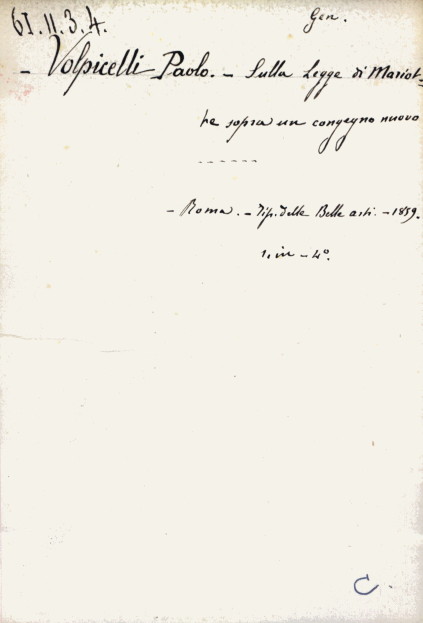 61.11.3.4.
Gen.
- Volpicelli Paolo. - Sulla Legge di Mariot-
te sopra un congegno nuovo
- - - - - -
- Roma. - Tip. delle Belle arti. - 1859.
1, in - 4°.
C.